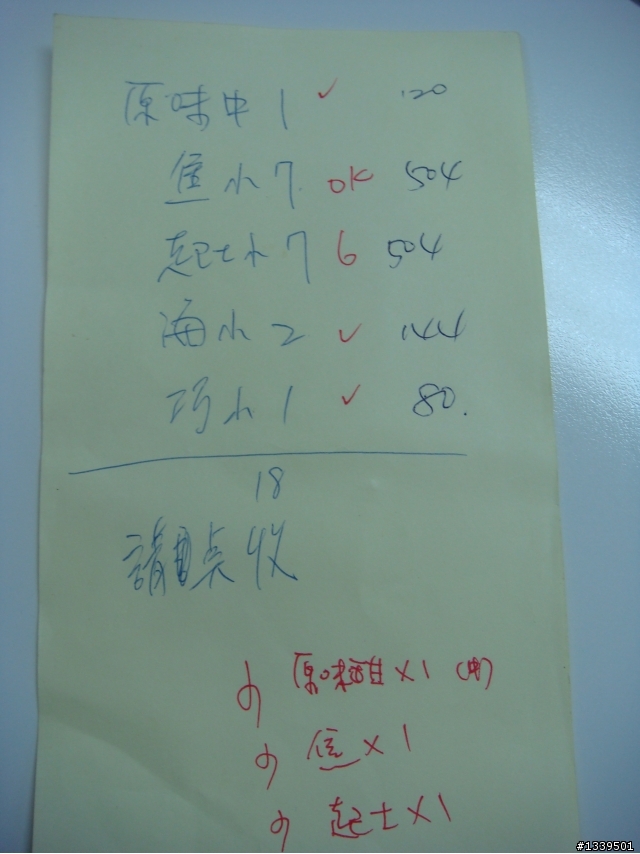 原味中1 ✓ 120
焦小7 OK 504
起士小7 6 504
海小2 ✓ 144
巧小1 ✓ 80.
18
請點收
少 原味雖×1 (中)
少 焦×1
少 起士×1
#1339501